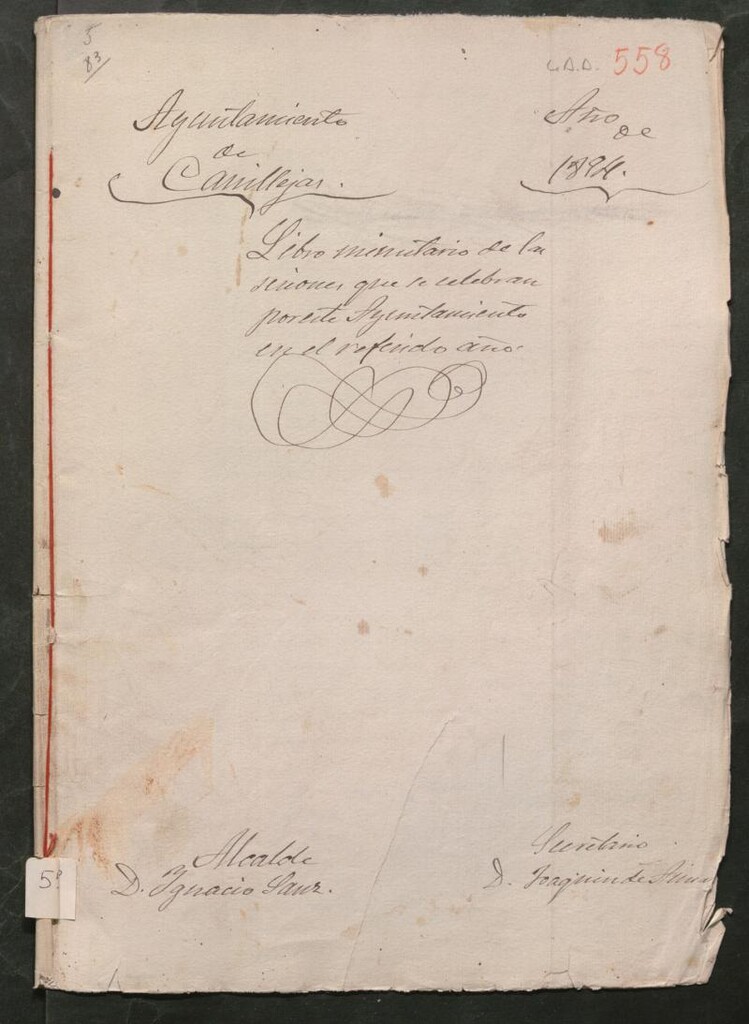 5
83
L.D.D. 558
Ayuntamiento
de
Canillejas.
Año
de
1894.
Libro minutario de las
sesiones que se celebran
por este Ayuntamiento
en el referido año.
Alcalde
D. Ygnacio Sanz.
Secretario
D. Joaquin de
5